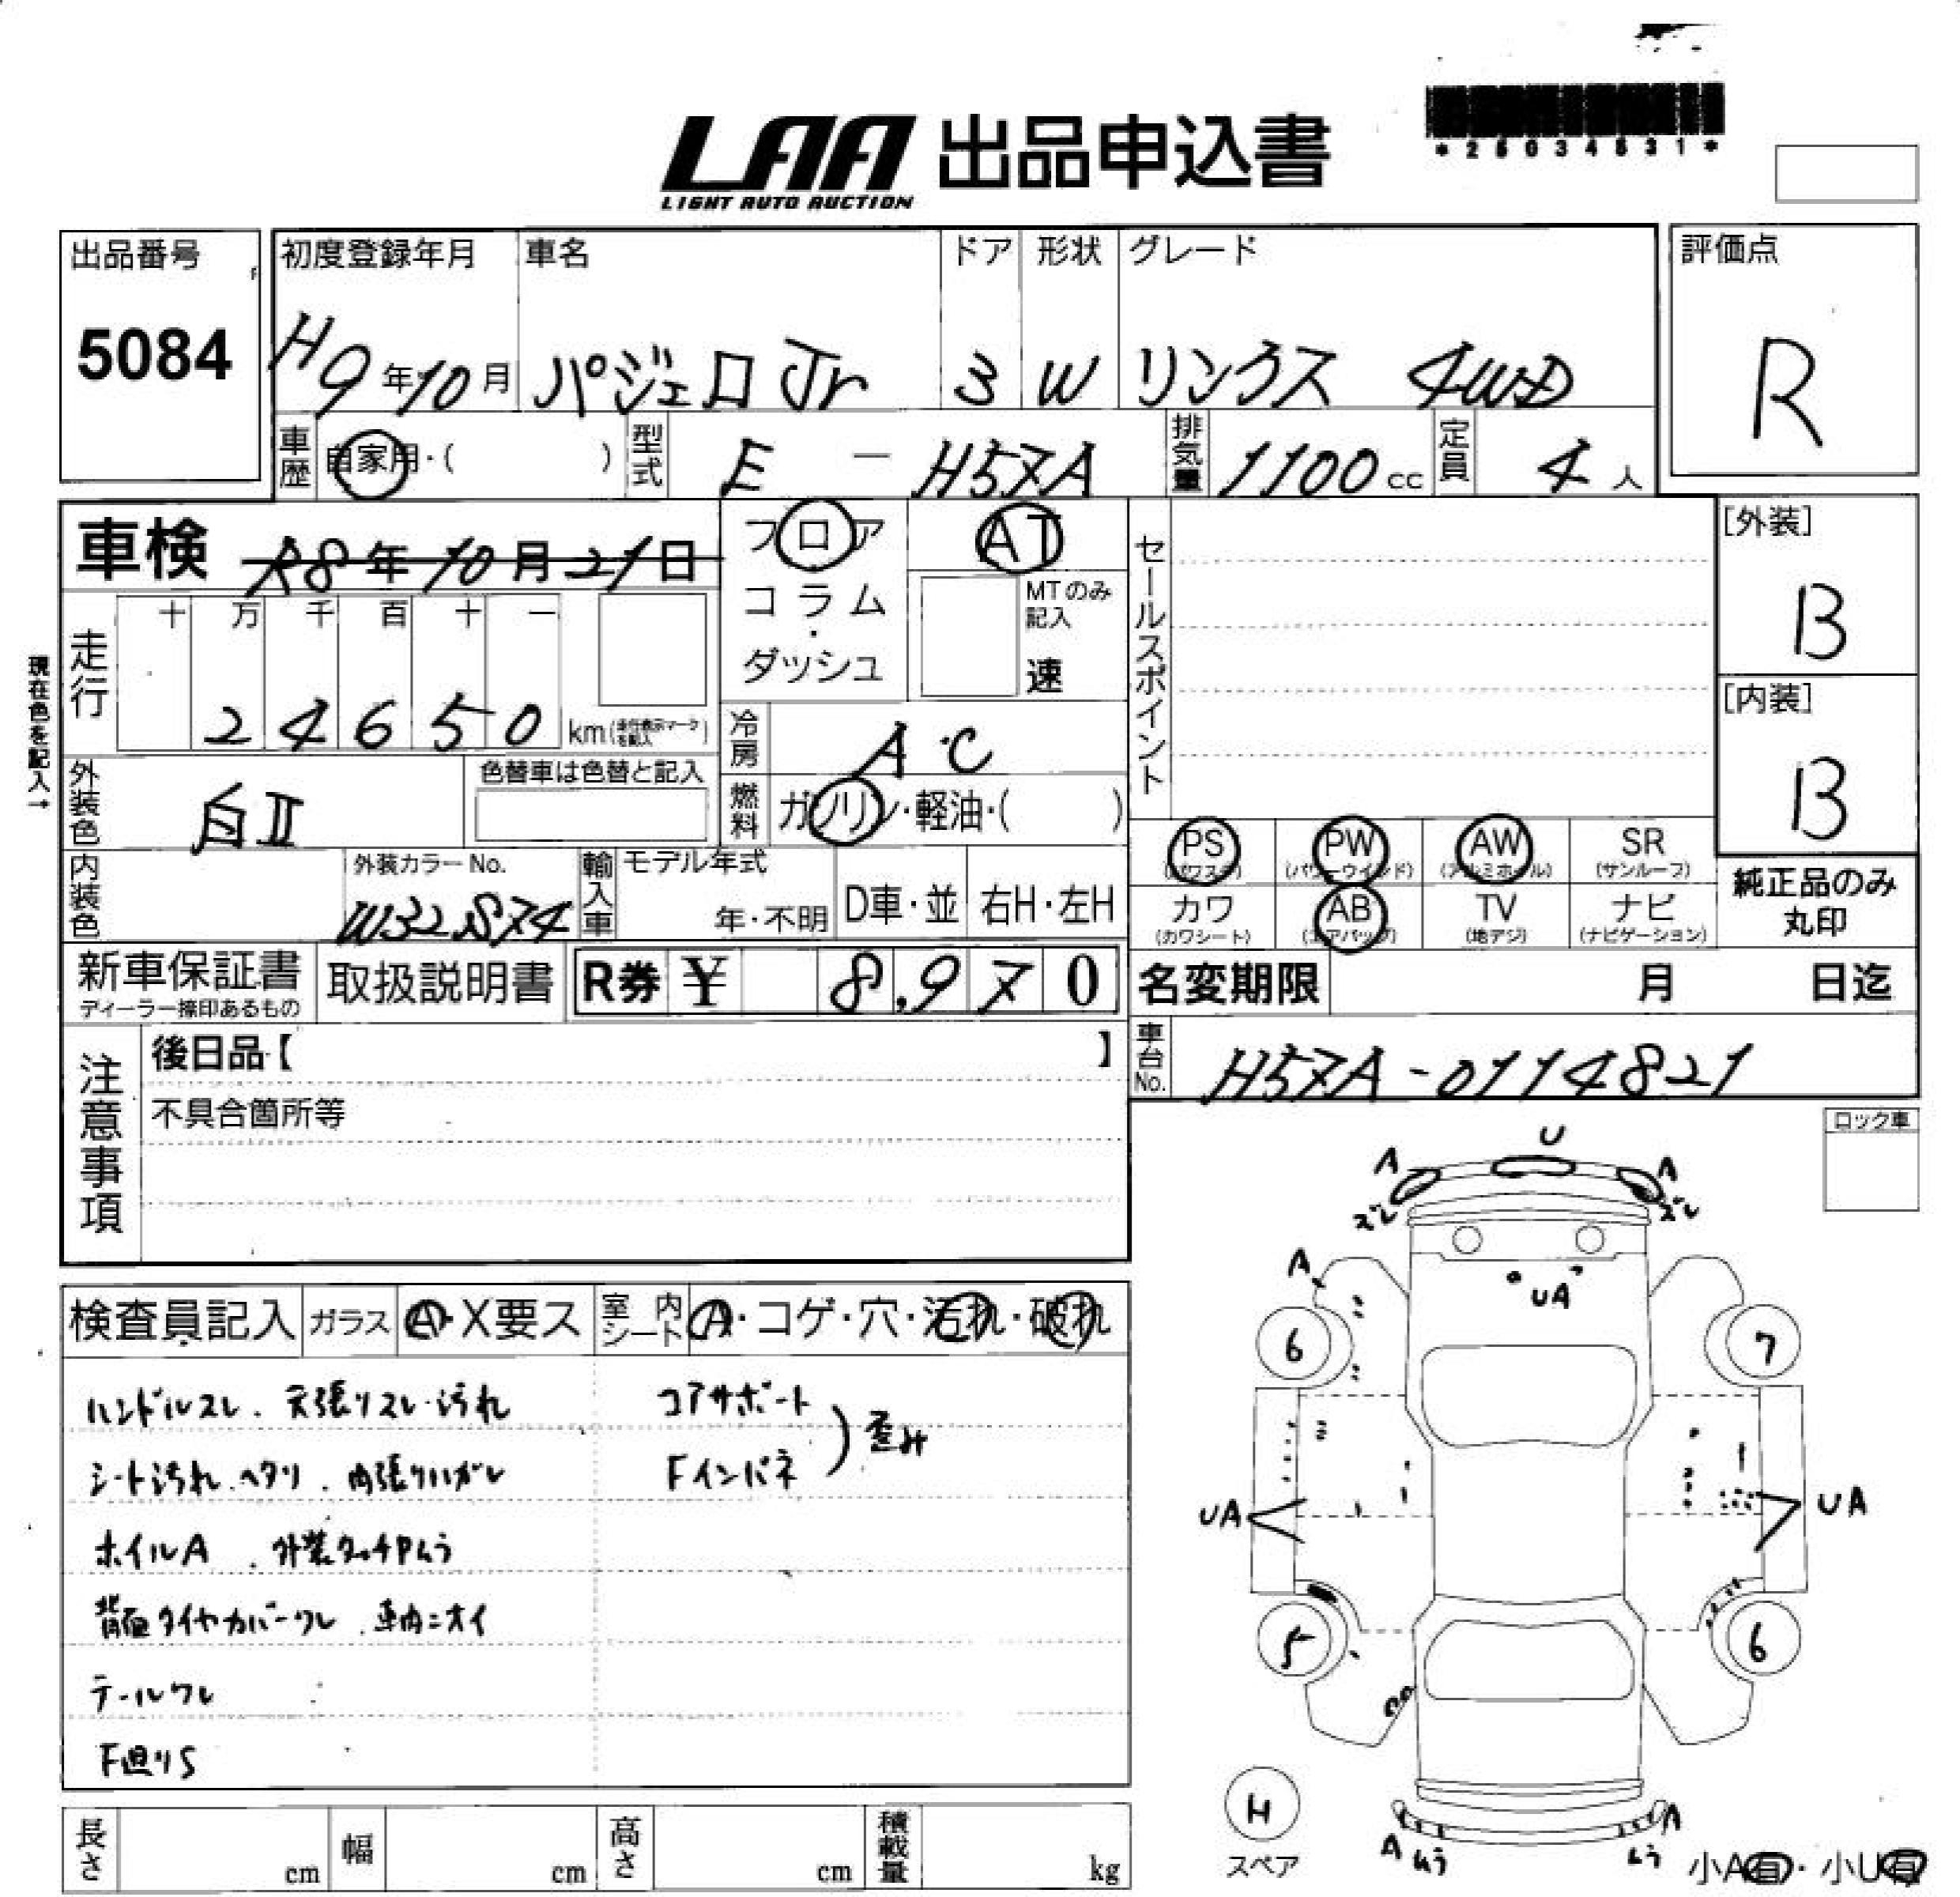 LAA 出品申込書
LIGHT AUTO AUCTION
*25034531*
出品番号
5084
初度登録年月
H9年10月
車名
パジェロJr
ドア
3
形状
W
グレード
リンクス 4WD
評価点
R
車歴
自家用・( )
型式
E - H57A
排気量
1100cc
定員
4人
車検 R8年10月21日
フロア
コラム
・
ダッシュ
AT
MTのみ
記入
速
セールスポイント
[外装]
B
[内装]
B
現在色を記入→
走行
十 万 千 百 十 一
2 4 6 5 0 km(走行表示マークを記入)
冷房
A・C
燃料
ガソリン・軽油・( )
外装色
白II
色替車は色替と記入
内装色
外装カラーNo.
W32 874
輸入車
モデル年式
年・不明
D車・並
右H・左H
PS
(パワステ)
PW
(パワーウインド)
AW
(アルミホイル)
SR
(サンルーフ)
カワ
(カワシート)
AB
(エアバッグ)
TV
(地デジ)
ナビ
(ナビゲーション)
純正品のみ
丸印
新車保証書
ディーラー捺印あるもの
取扱説明書
R券 ¥ 8,970
名変期限 月 日迄
注意事項
後日品【 】
不具合箇所等
車台No.
H57A-0114821
ロック車
検査員記入
ガラス
A・X要ス
室内
シート
A・コゲ・穴・汚れ・破れ
ハンドルスレ、天張りスレ・汚れ
コアサポート
Fインパネ
) 歪み
シート汚れ、ヘタリ、内張りハガレ
ホイルA、外装タッチPムラ
背面タイヤカバーワレ、車内ニオイ
テールワレ
F廻りS
U
A
A
ズレ
ズレ
A
UA
6
7
UA
UA
5
6
H
スペア
A
ムラ
A
ムラ
小A有・小U有
長さ cm
幅 cm
高さ cm
積載量 kg